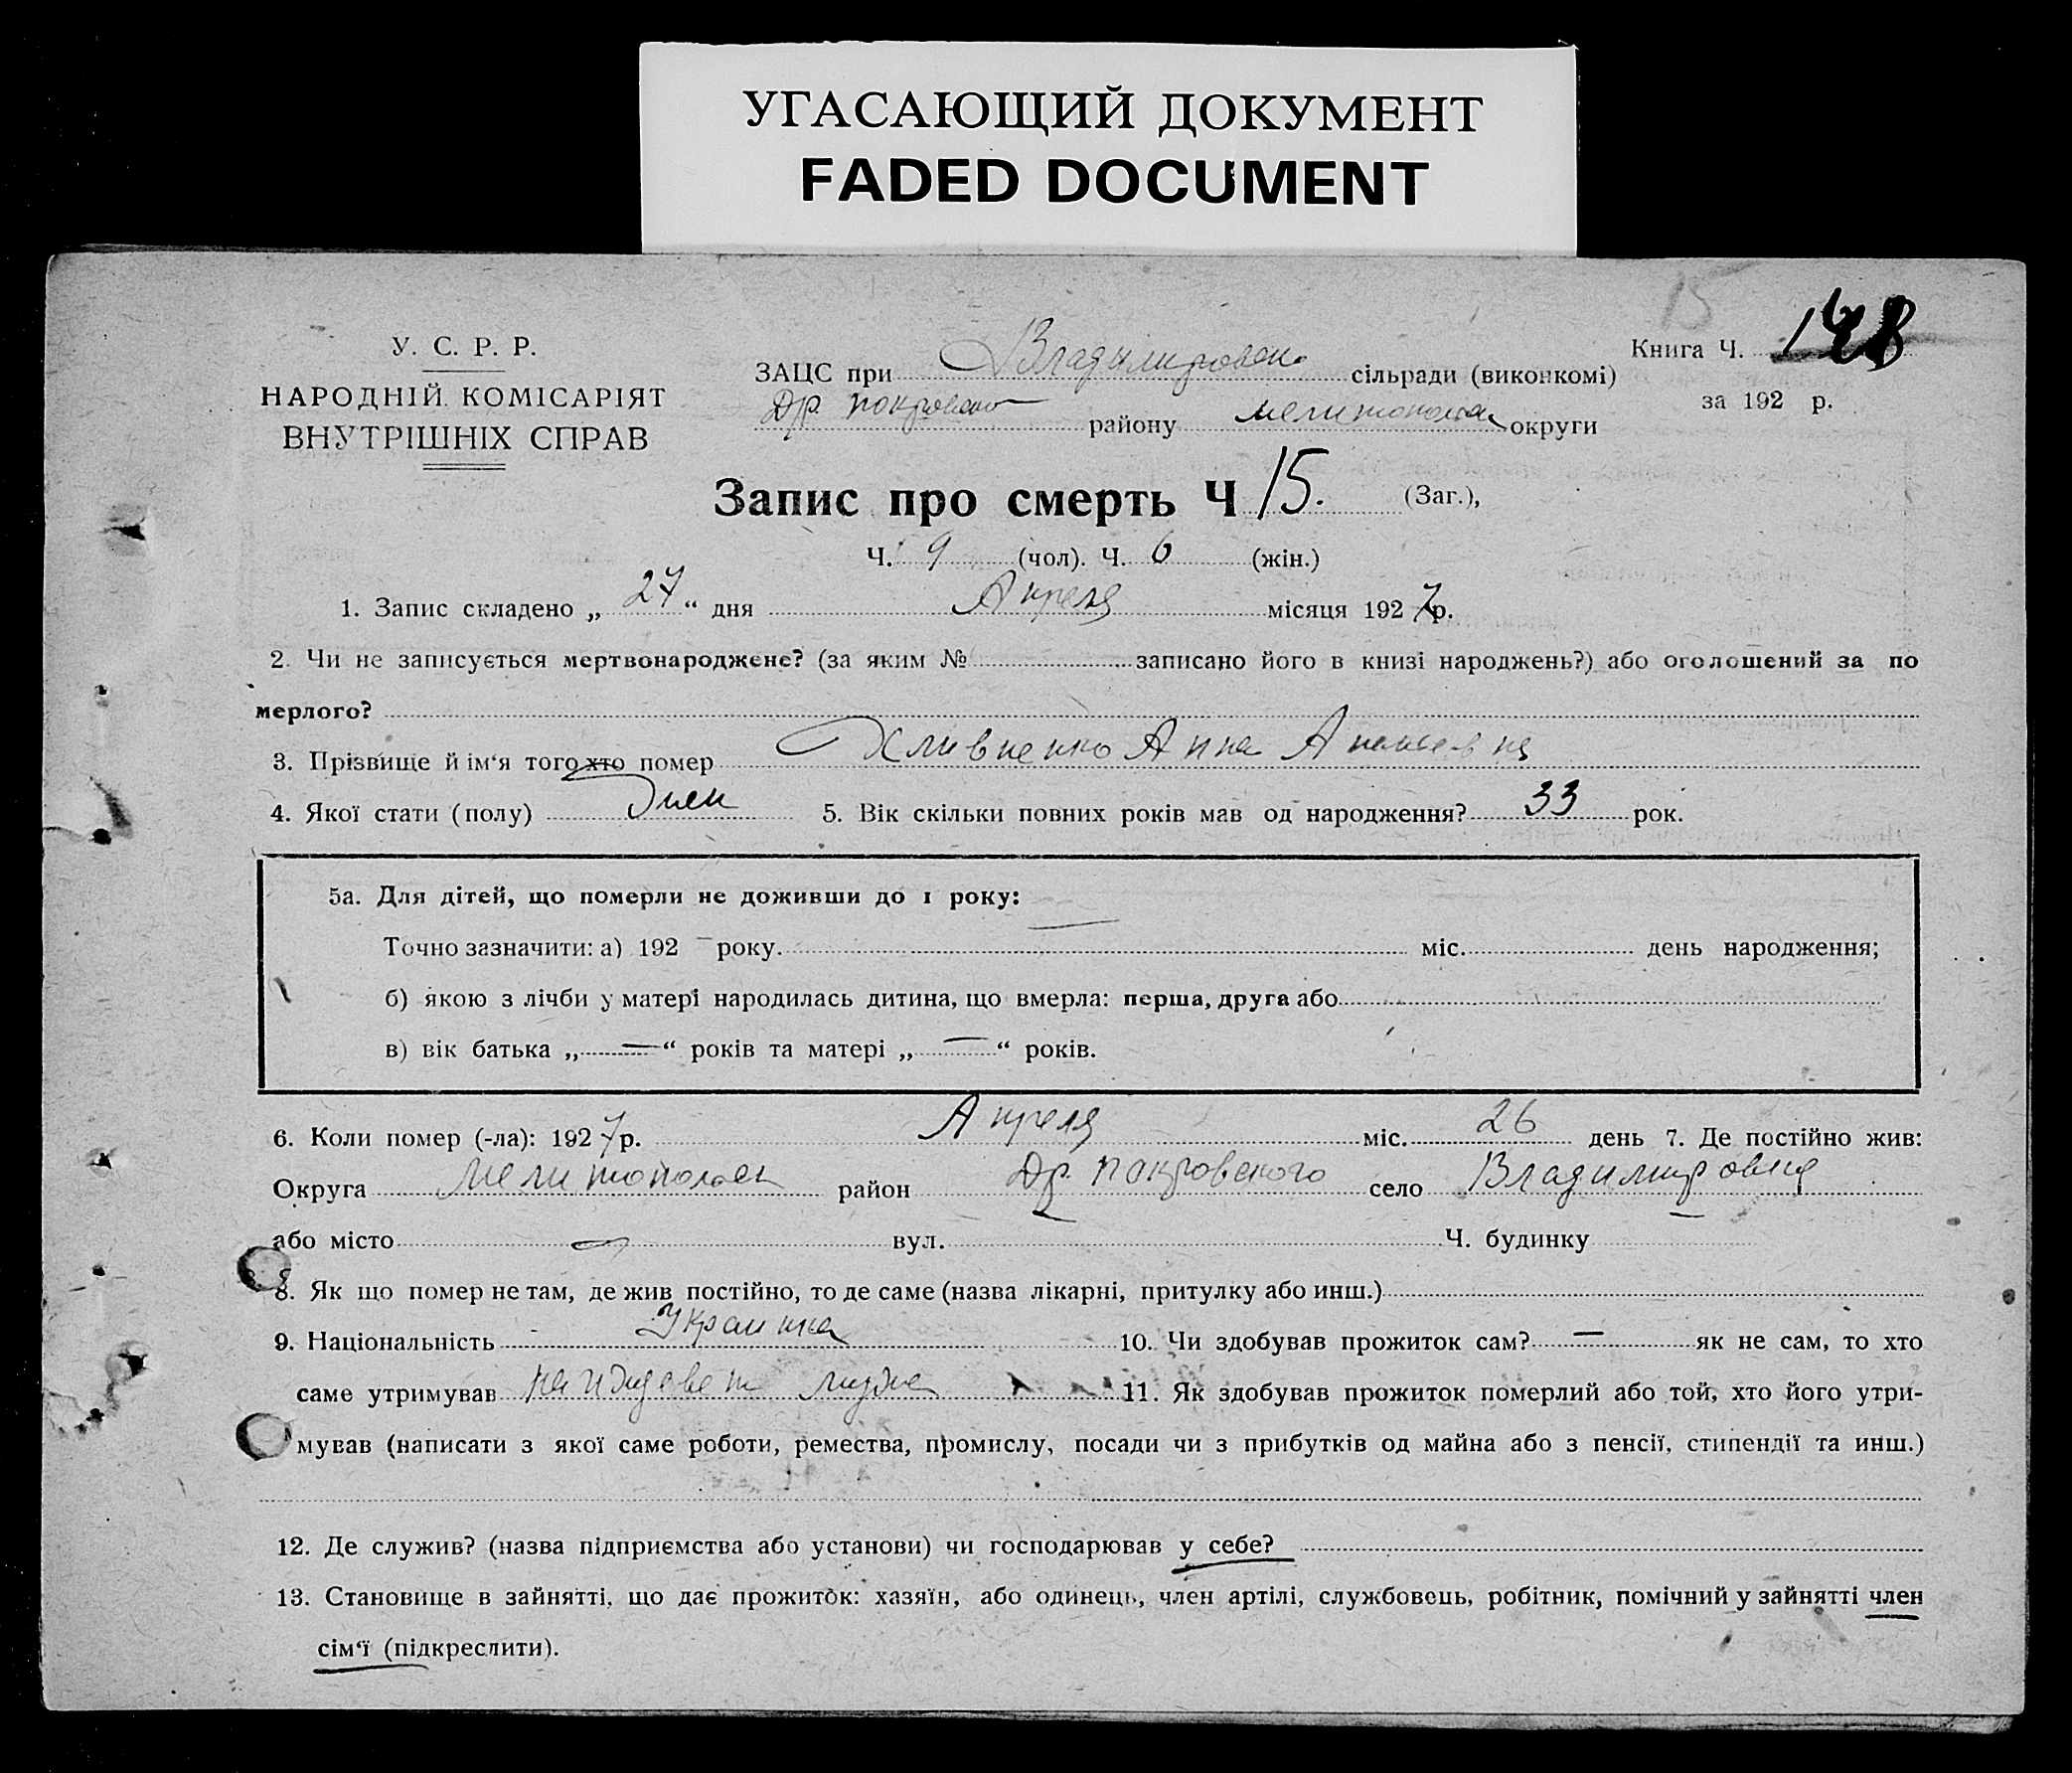 УГАСАЮЩИЙ ДОКУМЕНТ
FADED DOCUMENT
15
У. С. Р. Р.
НАРОДНІЙ КОМІСАРІЯТ
ВНУТРІШНІХ СПРАВ
Книга Ч.
за 192 р.
ЗАЦС при Владимировск сільради (виконкомі)
Др. покровского району мелитопольск округи
Запис про смерть Ч 15. (Заг.),
Ч. 9 (чол). Ч. 6 (жін.)
1. Запис складено „ 27 “ дня Апреля місяця 1927 р.
2. Чи не записується мертвонароджене? (за яким № записано його в книзі народжень?) або оголошений за по
мерлого?
3. Прізвище й ім‘я того хто помер Хливненко Анна
4. Якої стати (полу) жен 5. Вік скільки повних років мав од народження? 33 рок.
5а. Для дітей, що померли не доживши до 1 року: —
Точно зазначити: а) 192 — року. міс. день народження;
б) якою з лічби у матері народилась дитина, що вмерла: перша, друга або
в) вік батька „ — “ років та матері „ — “ років.
6. Коли помер (-ла): 1927 р. Апреля міс. 26 день 7. Де постійно жив:
Округа Мелитопольск район Др. покровского село Владимировка
або місто — вул. Ч. будинку —
8. Як що помер не там, де жив постійно, то де саме (назва лікарні, притулку або инш.)
9. Національність Украинка 10. Чи здобував прожиток сам? — як не сам, то хто
саме утримував на иждевет мужа 11. Як здобував прожиток померлий або той, хто його утри-
мував (написати з якої саме роботи, ремества, промислу, посади чи з прибутків од майна або з пенсії, стипендії та инш.)
12. Де служив? (назва підприємства або установи) чи господарював у себе?
13. Становище в зайнятті, що дає прожиток: хазяїн, або одинець, член артілі, службовець, робітник, помічний у зайнятті член
сім‘ї (підкреслити).